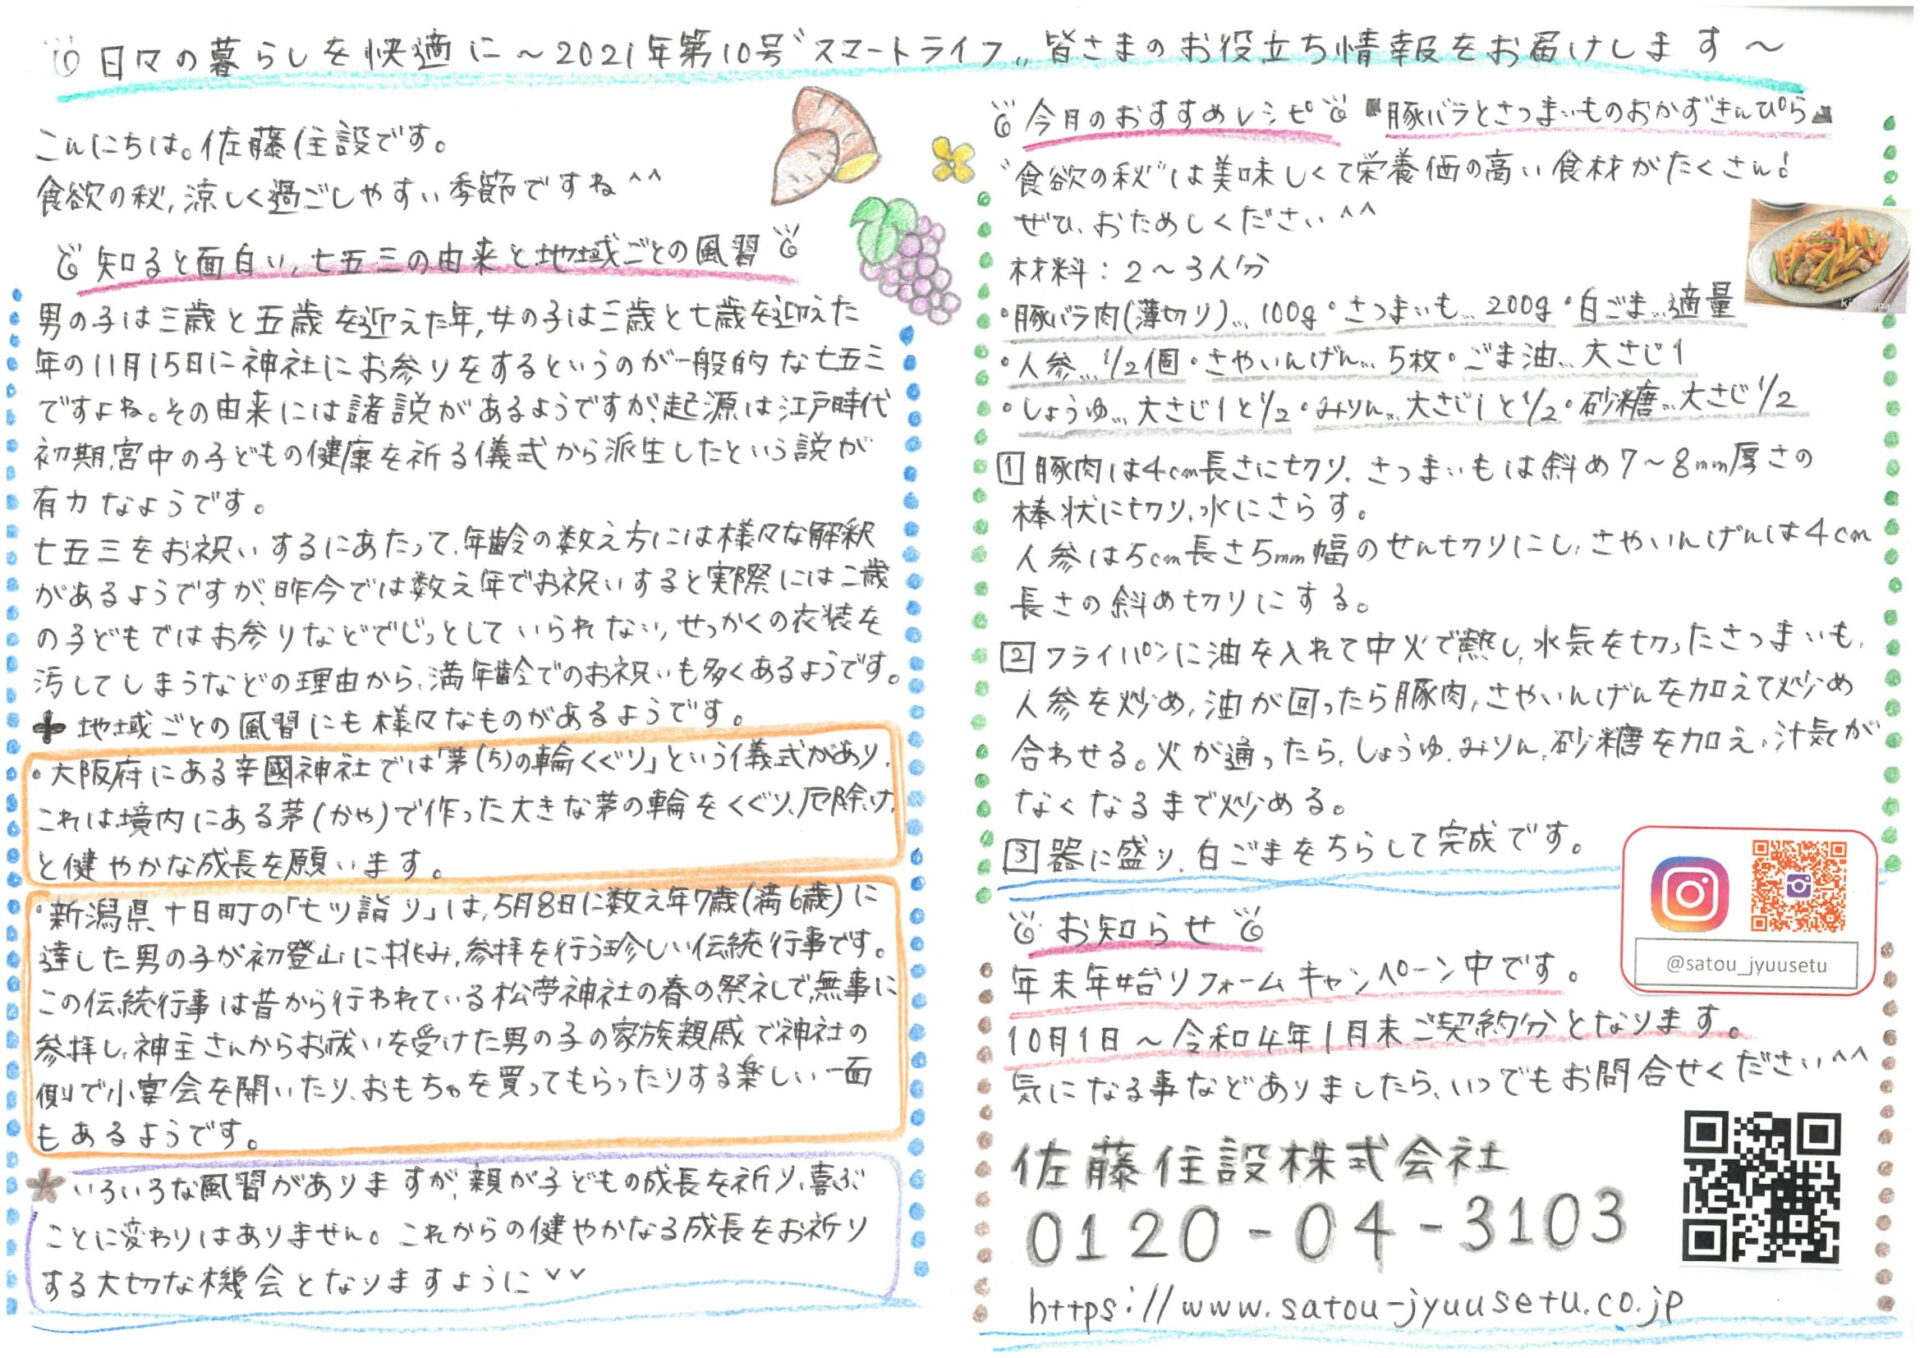 日々の暮らしを快適に～2021年第10号〝スマートライフ〟皆さまのお役立ち情報をお届けします～
こんにちは。佐藤住設です。
食欲の秋,涼しく過ごしやすい季節ですね^^
知ると面白い,七五三の由来と地域ごとの風習
男の子は三歳と五歳を迎えた年,女の子は三歳と七歳を迎えた
年の11月15日に神社にお参りをするというのが一般的な七五三
ですよね。その由来には諸説があるようですが、起源は江戸時代
初期,宮中の子どもの健康を祈る儀式から派生したという説が
有力なようです。
七五三をお祝いするにあたって、年齢の数え方には様々な解釈
があるようですが、昨今では数え年でお祝いすると実際には二歳
の子どもではお参りなどでじっとしていられない,せっかくの衣装を
汚してしまうなどの理由から、満年齢でのお祝いも多くあるようです。
地域ごとの風習にも様々なものがあるようです。
・大阪府にある辛國神社では「茅(ち)の輪くぐり」という儀式があり、
これは境内にある茅(かや)で作った大きな茅の輪をくぐり、厄除け
と健やかな成長を願います。
・新潟県十日町の「七ツ詣り」は,5月8日に数え年7歳(満6歳)に
達した男の子が初登山に挑み,参拝を行う珍しい伝統行事です。
この伝統行事は昔から行われている松苧神社の春の祭礼で,無事に
参拝し,神主さんからお祓いを受けた男の子の家族親戚で神社の
側で小宴会を開いたり、おもちゃを買ってもらったりする楽しい一面
もあるようです。
いろいろな風習がありますが、親が子どもの成長を祈り、喜ぶ
ことに変わりはありません。これからの健やかなる成長をお祈り
する大切な機会となりますように
今月のおすすめレシピ『豚バラとさつまいものおかずきんぴら』
〝食欲の秋〟は美味しくて栄養価の高い食材がたくさん!
ぜひ、おためしください^^
材料:2～3人分
・豚バラ肉(薄切り)…100g・さつまいも…200g・白ごま…適量
・人参…1/2個・さやいんげん…5枚・ごま油…大さじ1
・しょうゆ…大さじ1と1/2・みりん…大さじ1と1/2・砂糖…大さじ1/2
1 豚肉は4cm長さに切り、さつまいもは斜め7～8mm厚さの
棒状に切り、水にさらす。
人参は5cm長さ5mm幅のせん切りにし,さやいんげんは4cm
長さの斜め切りにする。
2 フライパンに油を入れて中火で熱し,水気を切ったさつまいも,
人参を炒め,油が回ったら豚肉,さやいんげんを加えて炒め
合わせる。火が通ったら,しょうゆ,みりん,砂糖を加え,汁気が
なくなるまで炒める。
3 器に盛り、白ごまをちらして完成です。
@satou_jyuusetu
お知らせ
年末年始リフォームキャンペーン中です。
10月1日～令和4年1月末ご契約分となります。
気になる事などありましたら、いつでもお問合せください^^
佐藤住設株式会社
0120-04-3103
https://www.satou-jyuusetu.co.jp